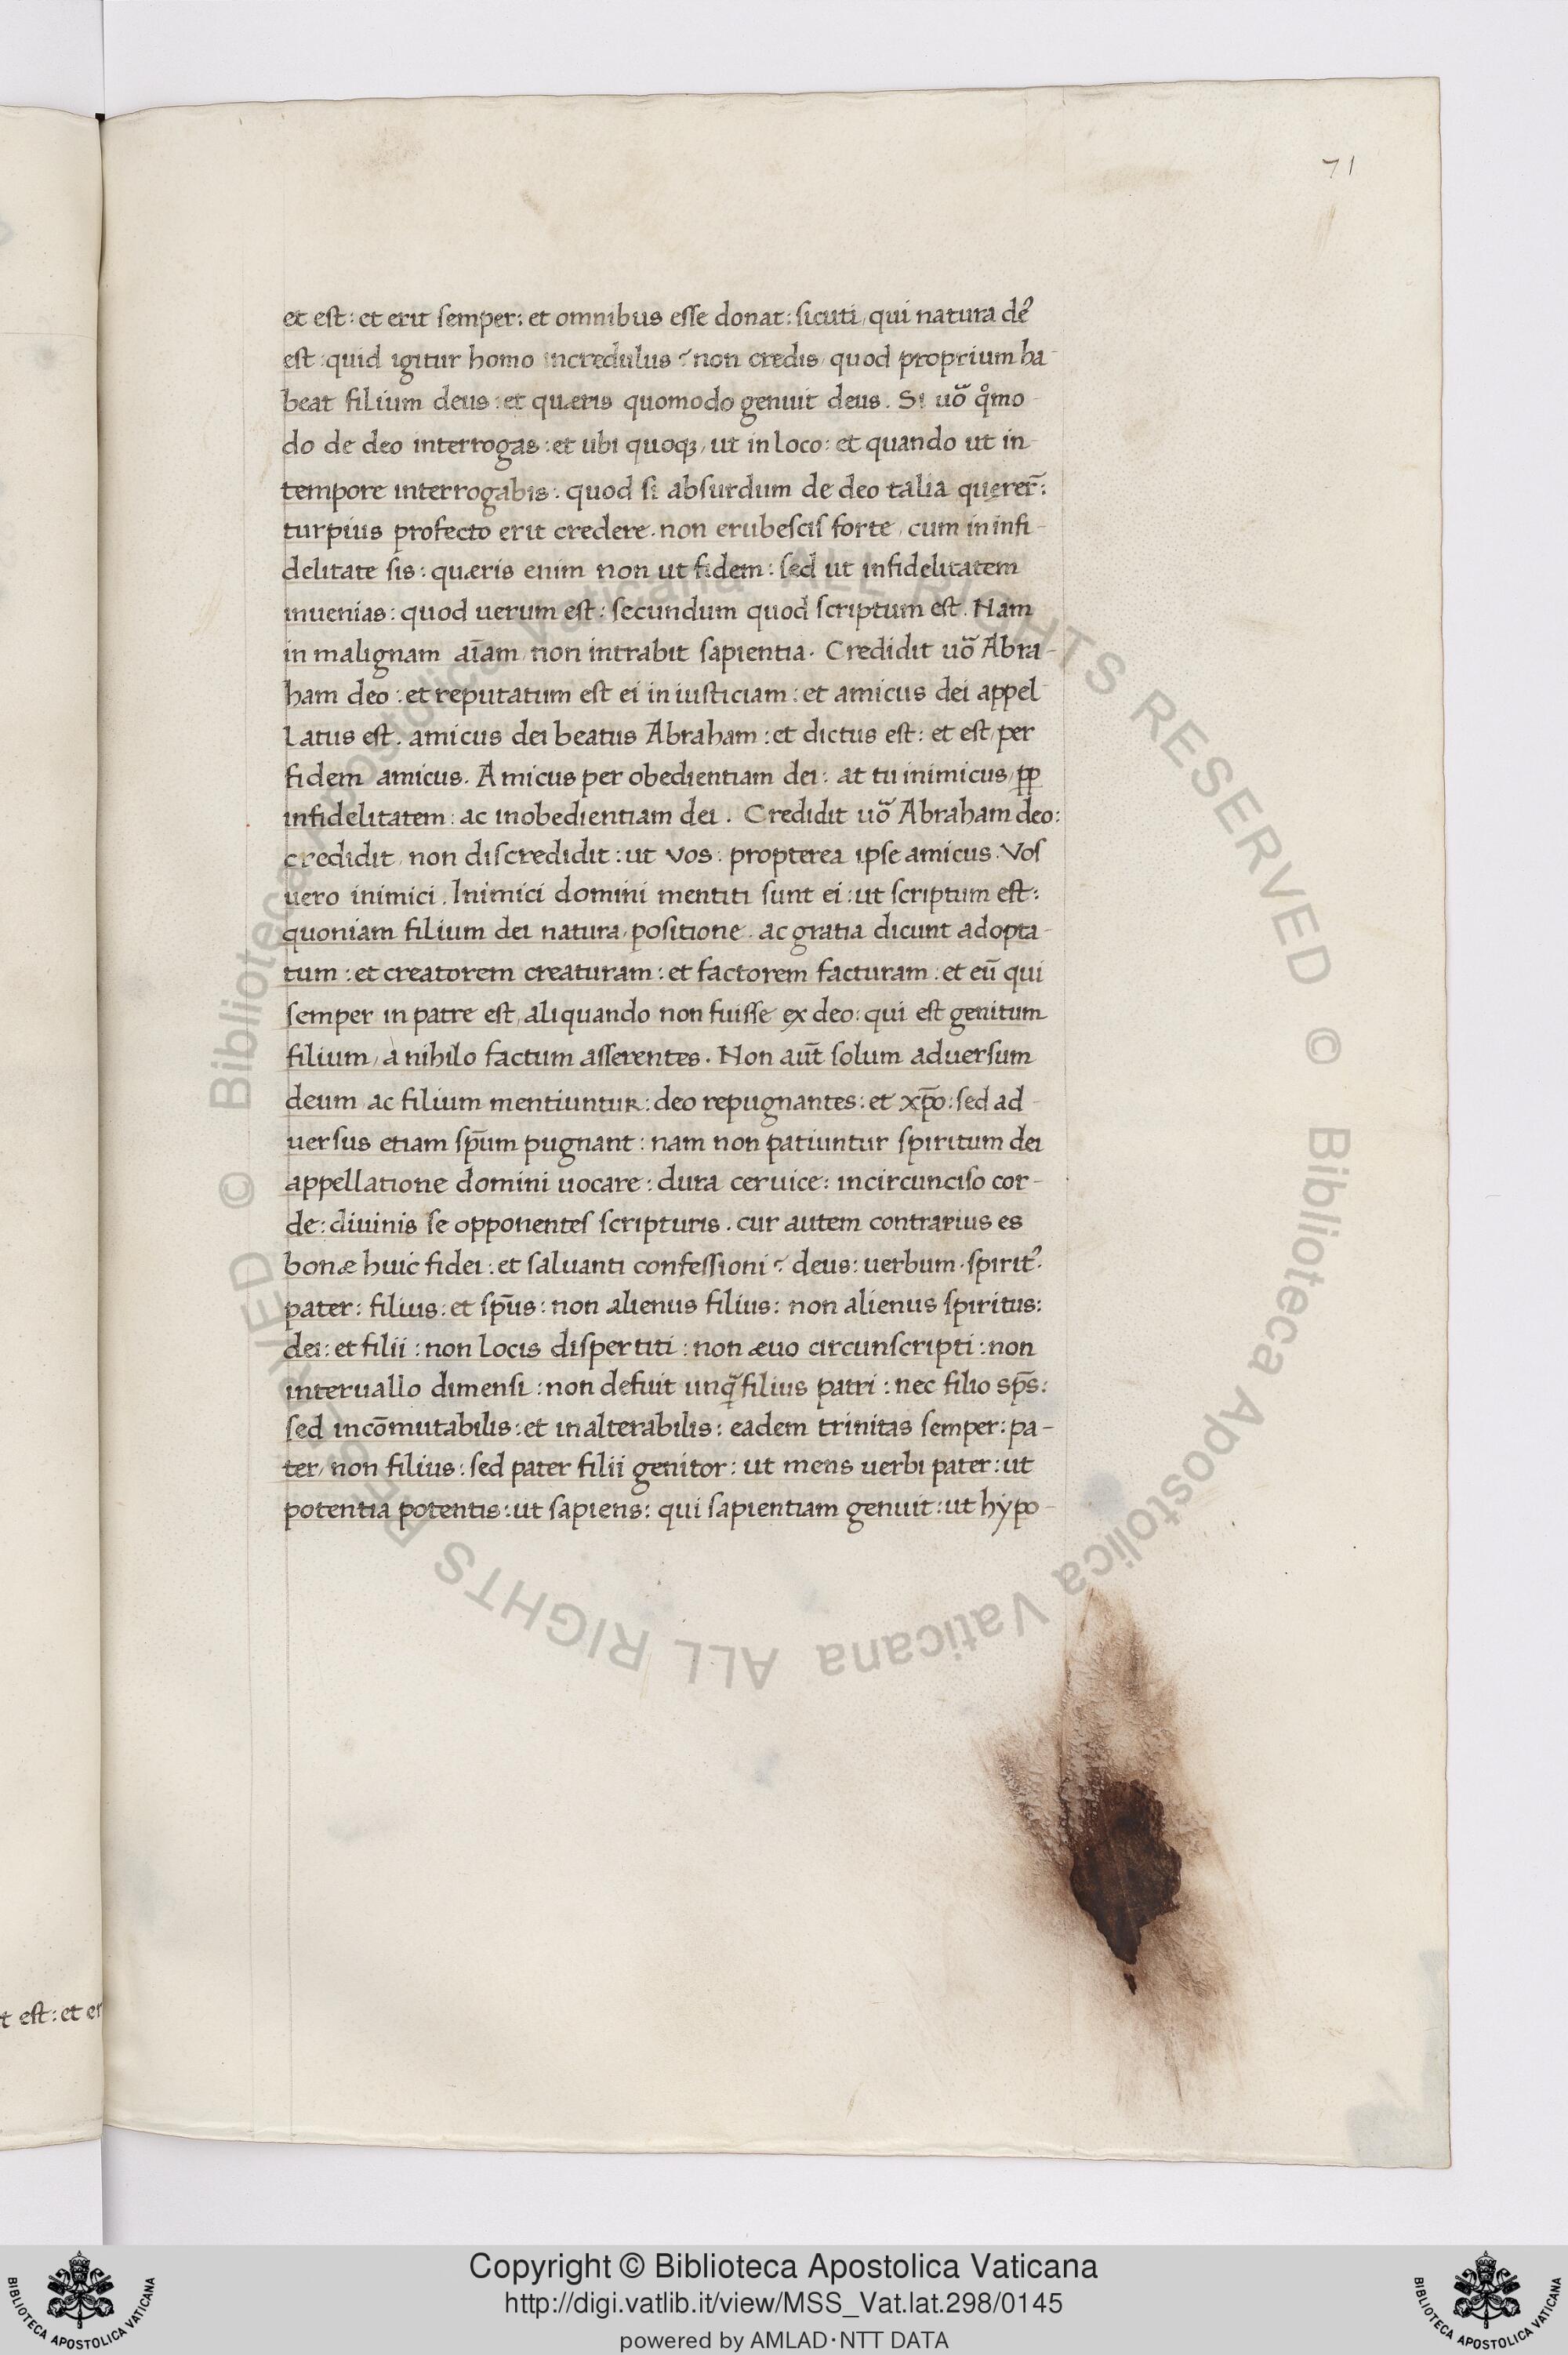 71
et est: et erit semper: et omnibus esse donat: sicuti, qui natura de᾽
est: quid igitur homo incredulus? non credis, quod proprium ha-
beat filium deus: et quæris quomodo genuit deus. Si uō q̊mo-
do de deo interrogas: et ubi quoqꝫ, ut in loco: et quando ut in
tempore interrogabis: quod si absurdum de deo talia querer̄:
turpius profecto erit credere. non erubescis forte, cum in infi-
delitate sis: quæris enim non ut fidem: sed ut infidelitatem
inuenias: quod uerum est: secundum quod scriptum est. Nam
in malignam aīam, non intrabit sapientia. Credidit uō Abra-
ham deo: et reputatum est ei in iusticiam: et amicus dei appel
latus est. amicus dei beatus Abraham: et dictus est: et est, per
fidem amicus. Amicus per obedientiam dei: at tu inimicus, ꝓp
infidelitatem: ac inobedientiam dei. Credidit uō Abraham deo:
credidit, non discredidit: ut vos: propterea ipse amicus. Vos
uero inimici. Inimici domini mentiti sunt ei: ut scriptum est:
quoniam filium dei natura, positione. ac gratia dicunt adopta-
tum: et creatorem creaturam: et factorem facturam: et eū qui
semper in patre est, aliquando non fuisse ex deo: qui est genitum
filium, a nihilo factum asserentes. Non aūt solum aduersum
deum, ac filium mentiuntur: deo repugnantes: et xp̄o: sed ad-
uersus etiam sp̄um pugnant: nam non patiuntur spiritum dei
appellatione domini uocare: dura ceruice: incircunciso cor-
de: diuinis se opponentes scripturis. cur autem contrarius es
bonæ huic fidei: et saluanti confessioni? deus: uerbum. spirit᾽.
pater: filius: et sp̄us: non alienus filius: non alienus spiritus:
dei: et filii: non locis dispertiti: non æuo circunscripti: non
interuallo dimensi: non defuit unq̄ filius patri: nec filio sp̄s:
sed incōmutabilis: et inalterabilis: eadem trinitas semper: pa-
ter, non filius: sed pater filii genitor: ut mens uerbi pater: ut
potentia potentis: ut sapiens: qui sapientiam genuit: ut hypo-
t est: et er
Copyright © Biblioteca Apostolica Vaticana
http://digi.vatlib.it/view/MSS_Vat.lat.298/0145
powered by AMLAD·NTT DATA
BIBLIOTECA APOSTOLICA VATICANA
BIBLIOTECA APOSTOLICA VATICANA
© Biblioteca Apostolica Vaticana ALL RIGHTS RESERVED © Biblioteca Apostolica Vaticana ALL RIGHTS RESERVED